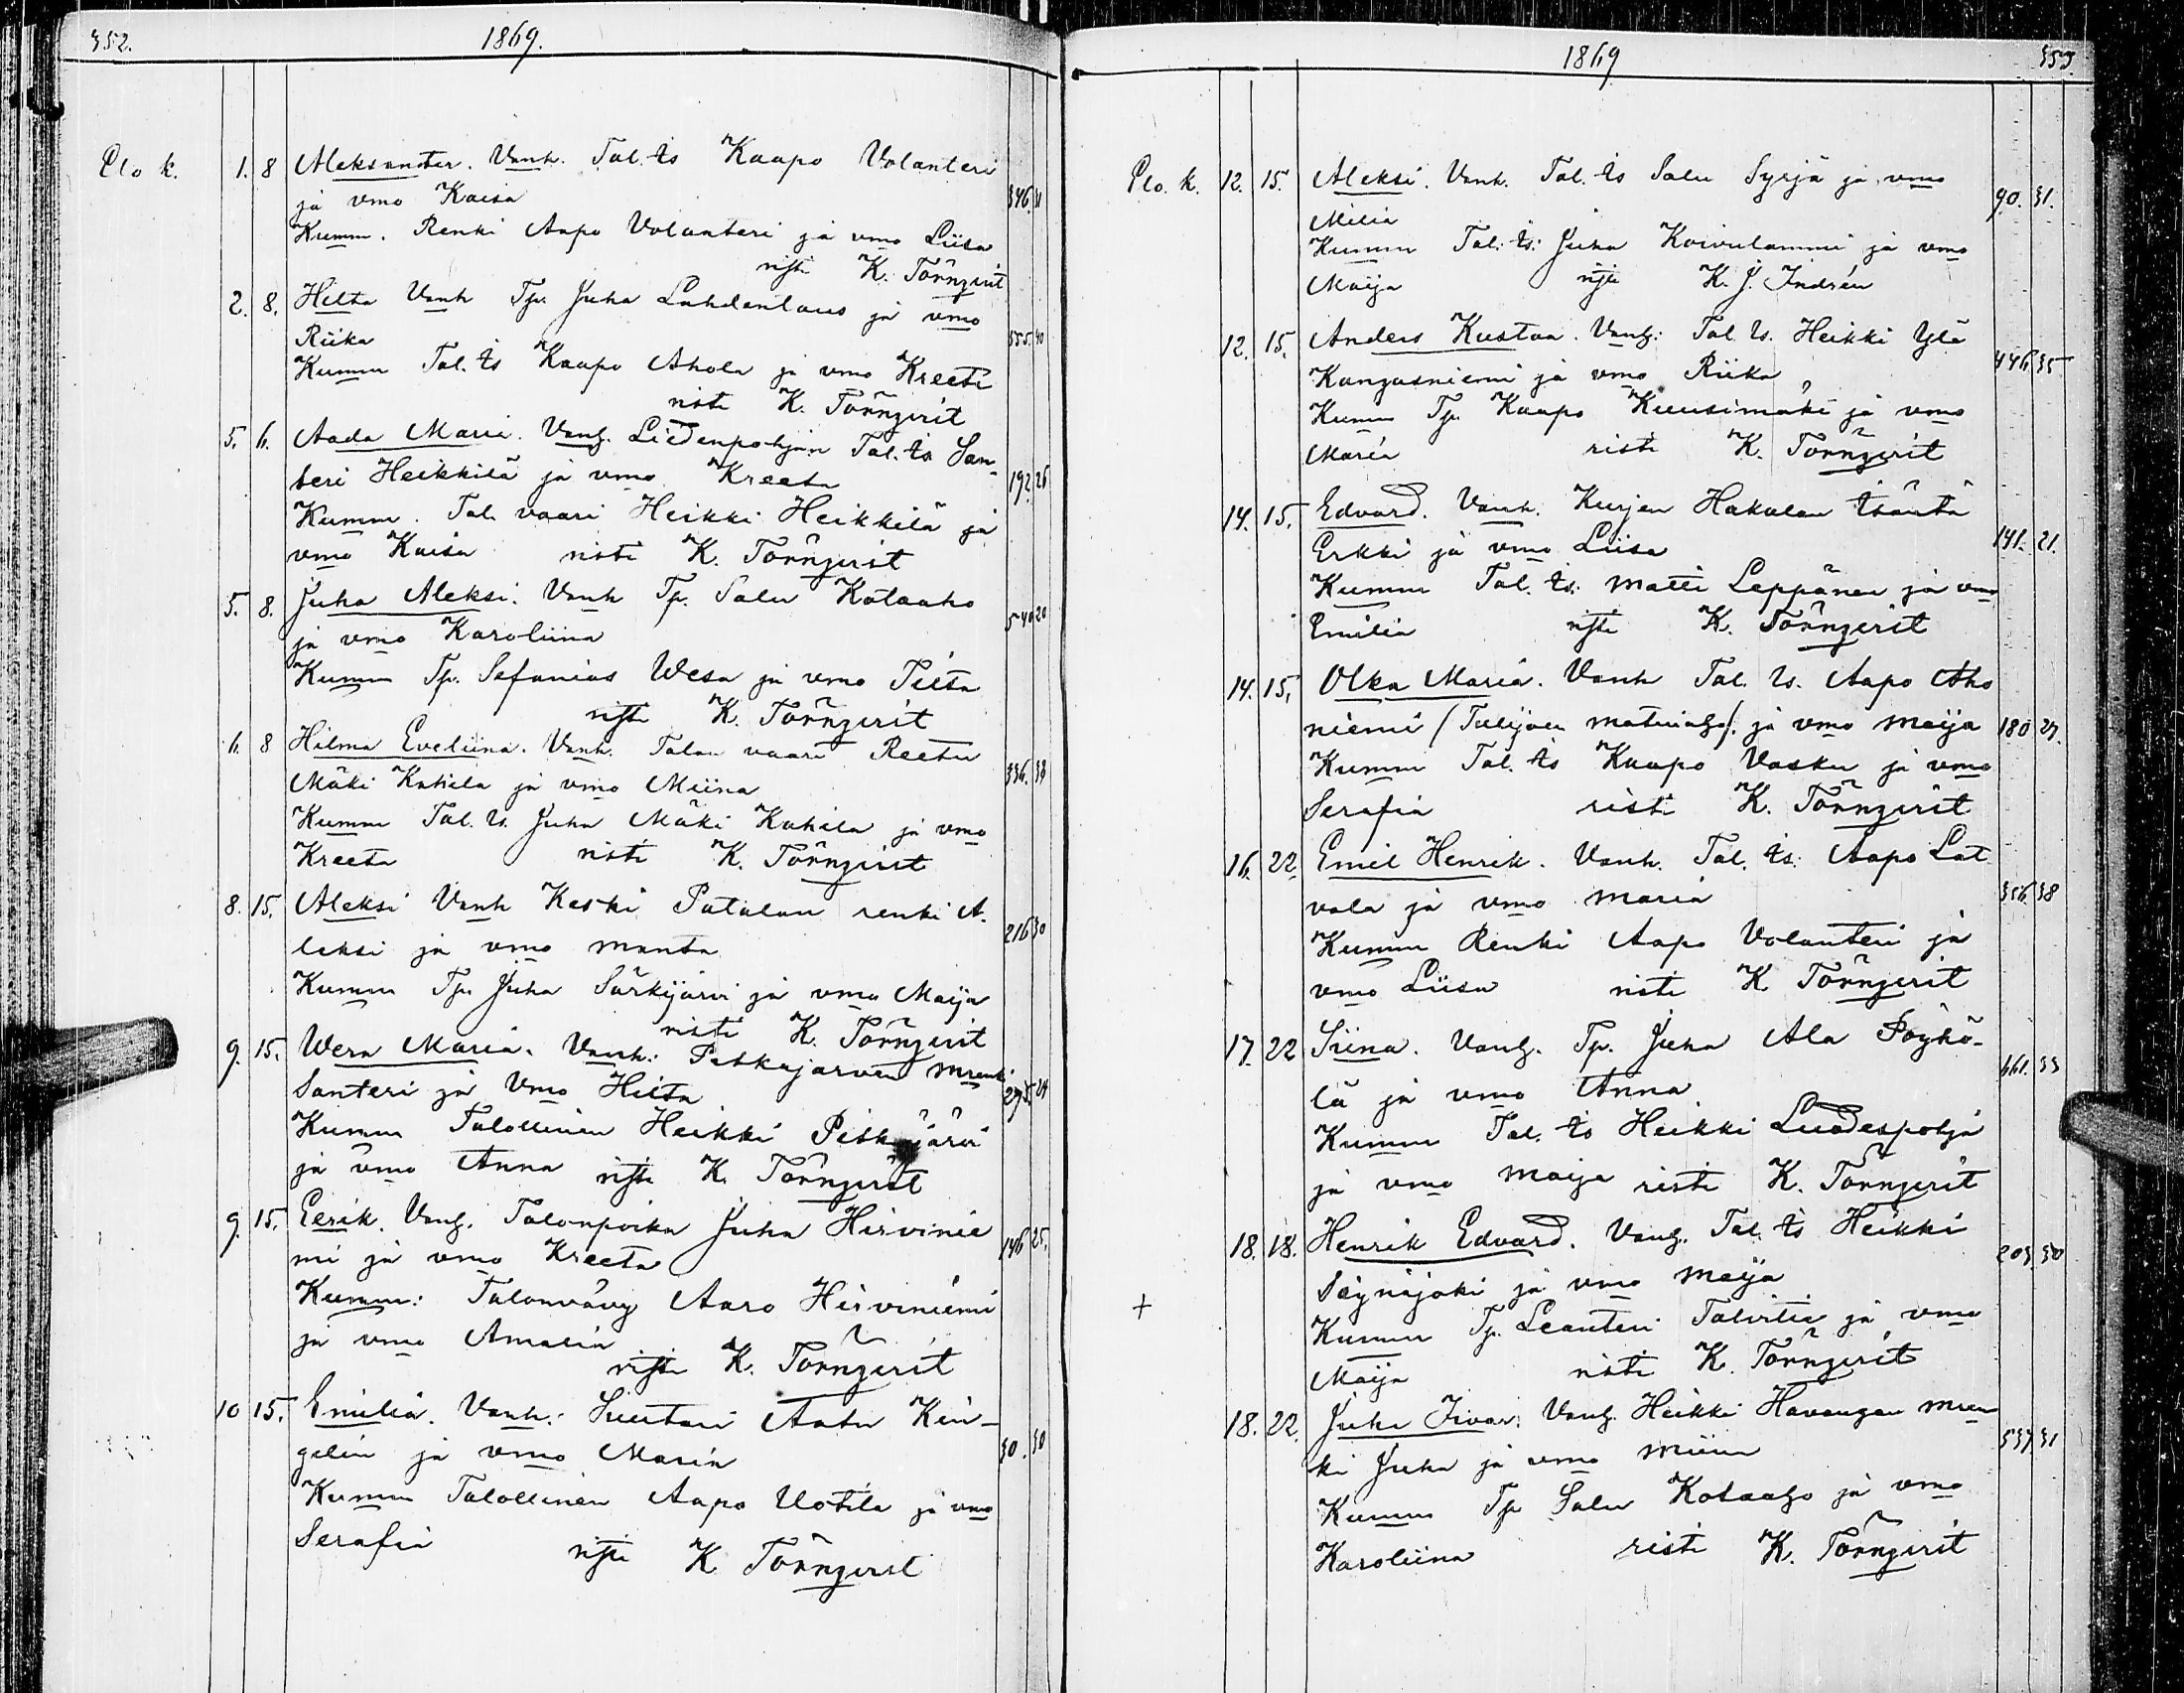 352. 1869.
Elo k. 1. 8 Aleksanter. Vanh. Tal. ts Kaapo Volanteri
ja vmo Kaisa 346. 31
Kumm. Renki Aapo Volanteri ja vmo Liisa
risti K. Törnqvist
2. 8. Hilta Vanh Tp. Juha Lahdenlaus ja vmo
Riika 555. 40
Kumm Tal. ts Kaapo Ahola ja vmo Kreeta
risti K. Törnqvist
5. 6. Aada Maria. Vanh. Liedenpohjan Tal. ts San-
teri Heikkilä ja vmo Kreeta 192. 26
Kumm. Tal. vaari Heikki Heikkilä ja
vmo Kaisa risti K. Törnqvist
5. 8. Juha Aleksi. Vanh Tp. Salu Kotaaho
ja vmo Karoliina 540 20
Kumm Tp. Sefanias Wesa ja vmo Tiita
risti K. Törnqvist
6. 8 Hilma Eveliina. Vanh. Talon vaari Reetu
Mäki Kahila ja vmo Miina 336. 33
Kumm Tal. ts. Juha Mäki Kahila ja vmo
Kreeta risti K. Törnqvist
8. 15. Aleksi Vanh Keski Patalan renki A-
leksi ja vmo Manta 216 30
Kumm Tp. Juha Särkijärvi ja vmo Maija
risti K. Törnqvist
9. 15. Wera Maria. Vanh: Petkajarven mrenki
Santeri ja Vmo Hilta 275. 24
Kumm Talollinen Heikki Petkajärvi
ja vmo Anna risti K. Törnqvist
9. 15. Eerik. Vanh. Talonpoika Juha Hirvinie
mi ja vmo Kreeta 146 25.
Kumm: Talonvävy Aaro Hirviniemi
ja vmo Amalia
risti K. Törnqvist
10 15. Emilia. Vanh: Suutari Aatu Kin-
gelin ja vmo Maria 30. 30
Kumm Talollinen Aapo Uotila ja vmo
Serafia risti K Törnqvist
1869 353.
Elo. k. 12. 15. Aleksi. Vanh. Tal. ts Salu Syrjä ja vmo
Milia 90. 31.
Kumm Tal. ts: Juha Koivulammi ja vmo
Maija risti K. J. Indrén
12. 15. Anders Kustaa. Vanh: Tal. ts. Heikki Ylä
Kangasniemi ja vmo Riika 446 35
Kumm Tp. Kaapo Kuusimäki ja vmo
Maria risti K. Törnqvist
14. 15. Edvard. Vanh. Kurjen Hakalan isäntä
Erkki ja vmo Liisa 141. 21.
Kumm Tal. ts. Matti Leppänen ja vmo
Emilia risti K. Törnqvist
14. 15. Olka Maria. Vanh Tal. ts. Aapo Aho
niemi ja vmo Maija 180 27.
Kumm Tal. ts Kaapo Vasku ja vmo
Serafia risti K. Törnqvist
16. 22 Emil Henrik. Vanh. Tal. ts: Aapo Lat
vala ja vmo Maria 356. 38
Kumm Renki Aapo Volanteri ja
vmo Liisa risti K Törnqvist
17. 22 Siina. Vanh. Tp. Juha Ala Pöyhö-
lä ja vmo Anna 661. 33
Kumm Tal. ts Heikki Luodespohja
ja vmo Maija risti K. Törnqvist
18. 18. Henrik Edvard. Vanh. Tal. ts Heikki
Säynäjoki ja vmo Maija 203 30
+ Kumm Tp. Leanteri Talvitie ja vmo
Maija risti K. Törnqvist
18. 22. Juha Iivar. Vanh. Heikki Havangan mren
ki Juha ja vmo Miina 537 31
Kumm Tp Salu Kotaaho ja vmo
Karoliina risti K. Törnqvist